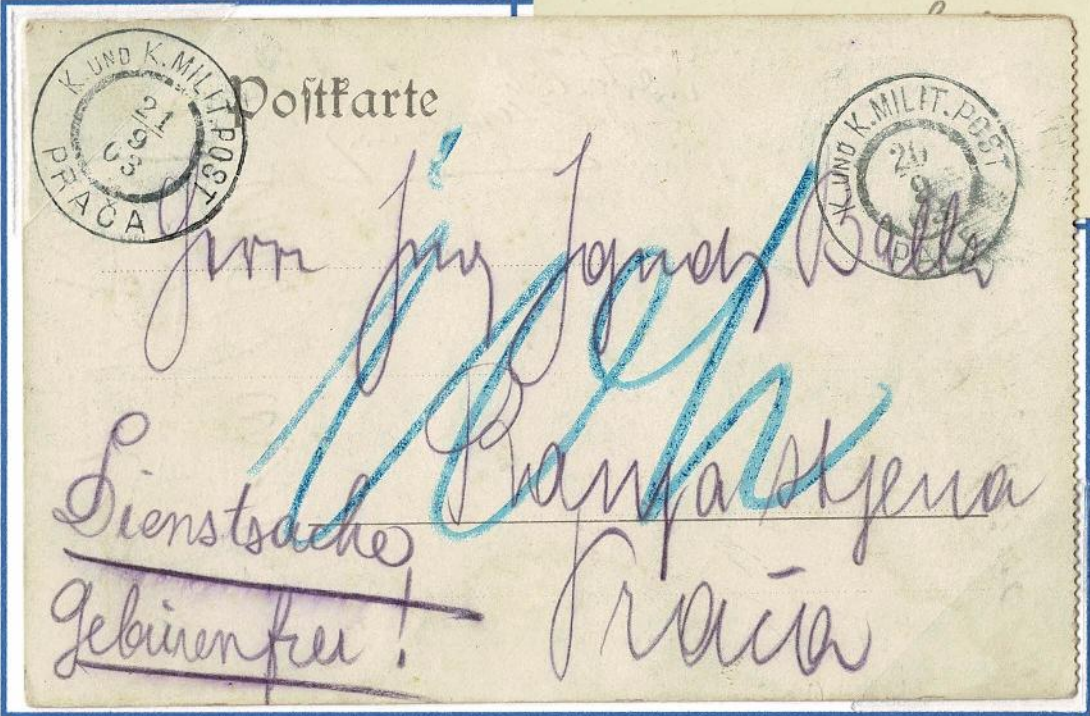 K. UND K. MILIT. POST
21
9
03
PRAČA
Poſtkarte
K. UND K. MILIT. POST
9
Herr Ing Balla
Ranjastjena
Prača
Dienstsache
Gebürenfrei!